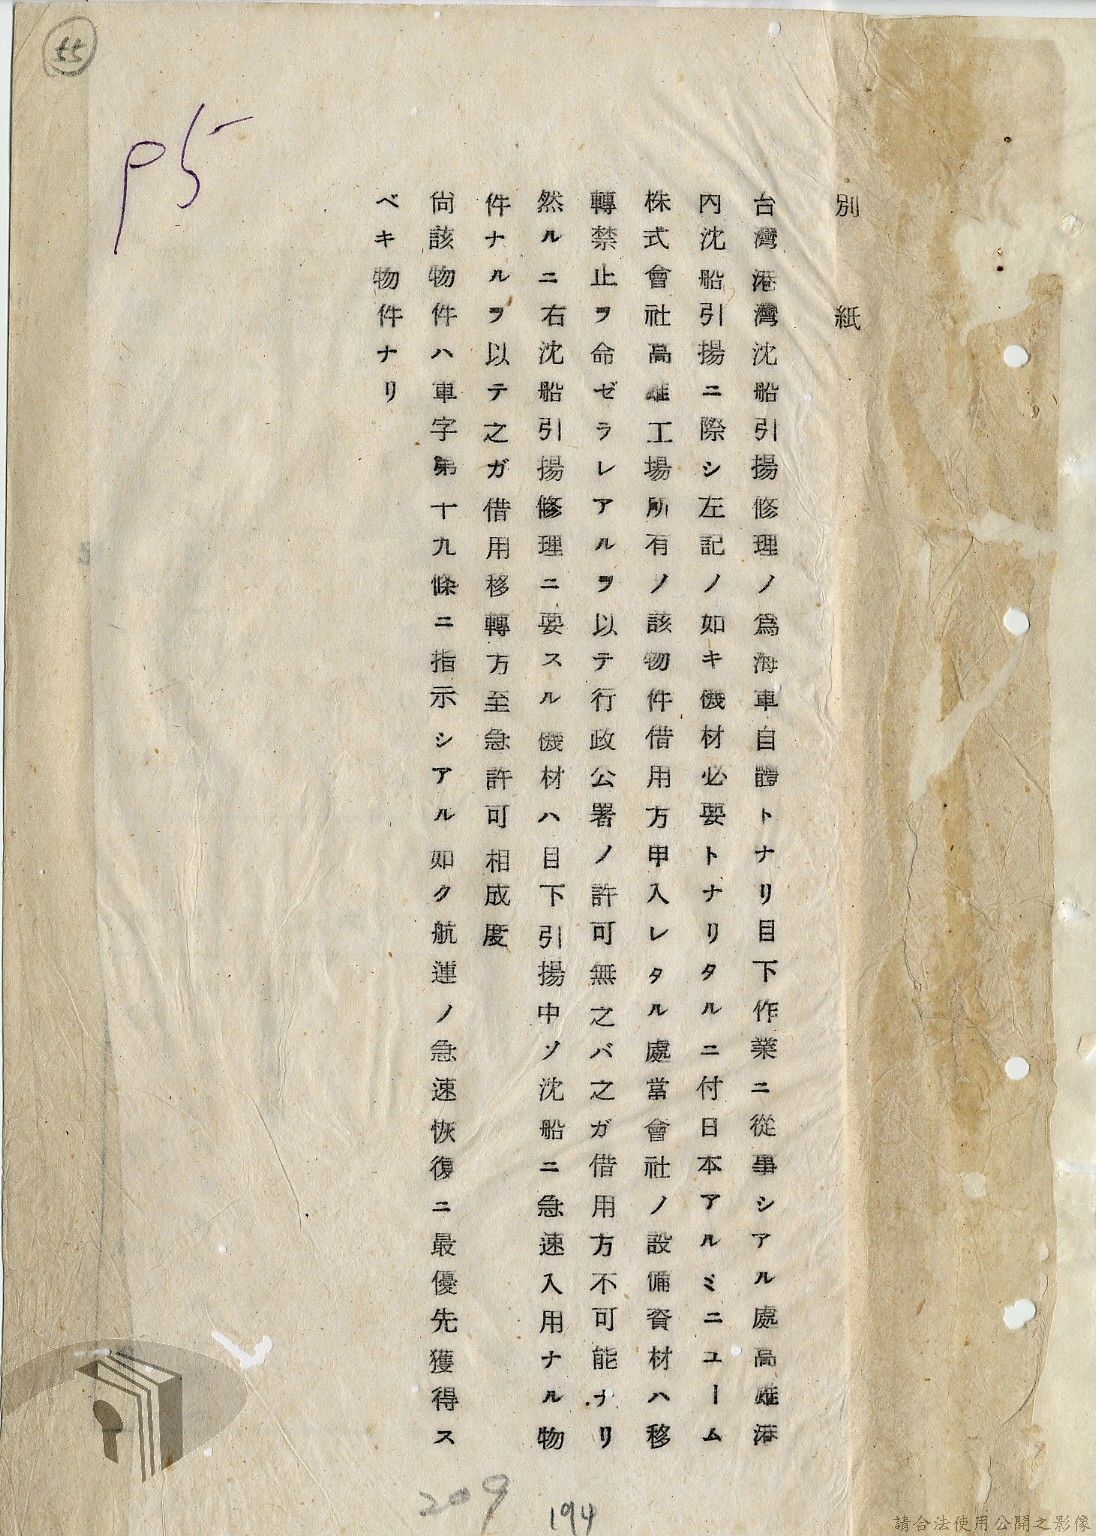 55
P5
別紙
台灣港灣沈船引揚修理ノ爲海軍自體トナリ目下作業ニ從事シアル處高雄港
內沈船引揚ニ際シ左記ノ如キ機材必要トナリタルニ付日本アルミニユーム
株式會社高雄工場所有ノ該物件借用方申入レタル處當會社ノ設備資材ハ移
轉禁止ヲ命ゼラレアルヲ以テ行政公署ノ許可無之バ之ガ借用方不可能ナリ
然ルニ右沈船引揚修理ニ要スル機材ハ目下引揚中ソ沈船ニ急速入用ナル物
件ナルヲ以テ之ガ借用移轉方至急許可相成度
尙該物件ハ軍字第十九條ニ指示シアル如ク航運ノ急速恢復ニ最優先獲得ス
ベキ物件ナリ
209
194
請合法使用公開之影像